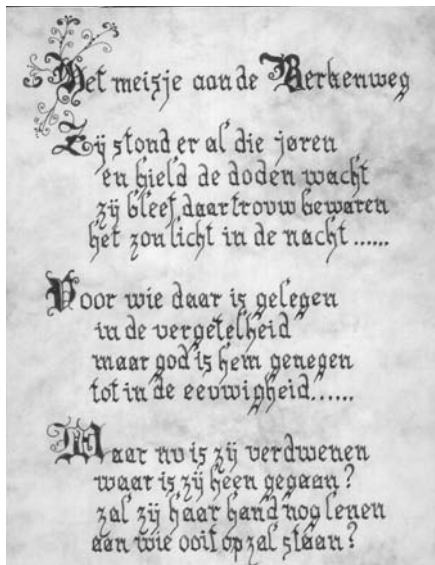 Het meisje aan de Berkenweg
Zij stond er al die jaren
en hield de doden wacht
zij bleef daar trouw bewaren
het zonlicht in de nacht ......
Voor wie daar is gelegen
in de vergetelheid
maar god is hem genegen
tot in de eeuwigheid......
Maar nu is zij verdwenen
waar is zij heen gegaan?
zal zij haar hand nog lenen
aan wie ooit op zal staan?